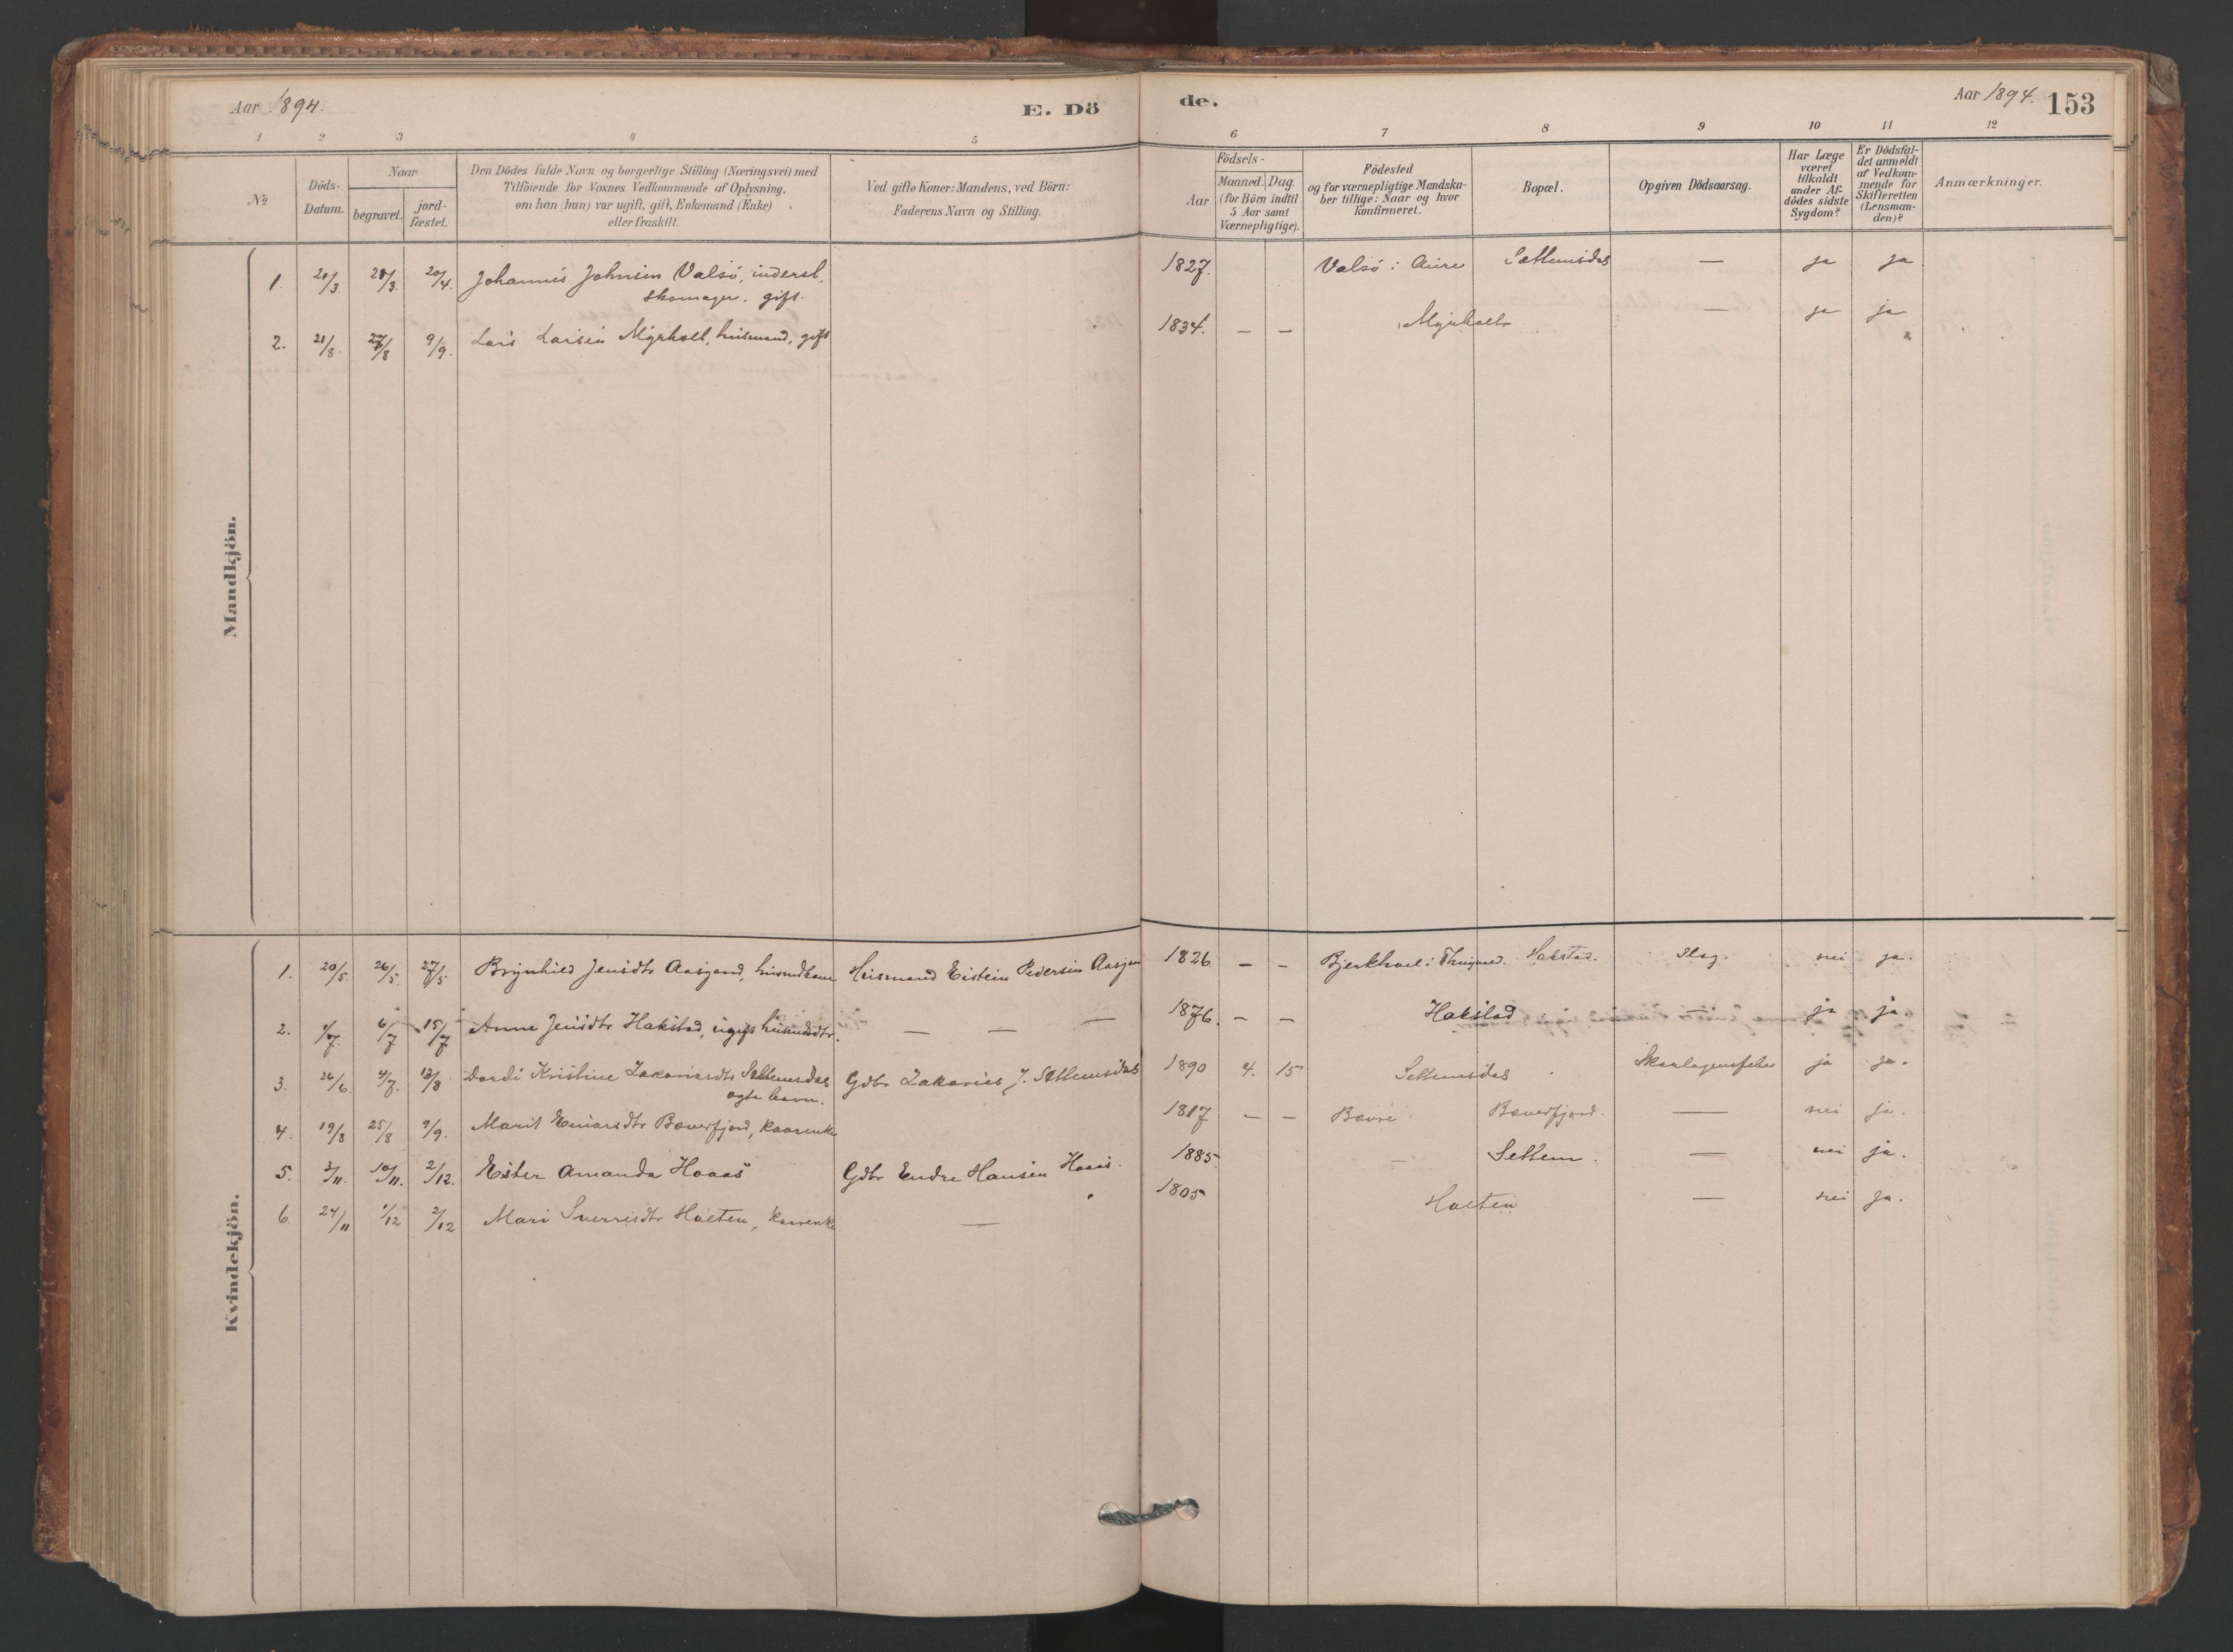 Aar 1894.
E. Dö
de.
Aar 1894.
153
1 2 3 4 5 6 7 8 9 10 11 12
No
Döds-
Datum.
Naar
begravet.
jord-
fæstet.
Den Dödes fulde Navn og borgerlige Stilling (Næringsvei) med
Tilföiende for Voxnes Vedkommende af Oplysning,
om han (hun) var ugift, gift, Enkemand (Enke)
eller fraskilt.
Ved gifte Koner: Mandens, ved Börn:
Faderens Navn og Stilling.
Födsels-
Aar
Maaned. Dag.
(for Börn indtil
5 Aar samt
Værnepligtige).
Födested
og for værnepligtige Mandska-
ber tillige: Naar og hvor
konfirmeret.
Bopæl.
Opgiven Dödsaarsag.
Har Læge
været
tilkaldt
under Af-
dödes sidste
Sygdom?
Er Dödsfal-
det anmeldt
af Vedkom-
mende for
Skifteretten
(Lensman-
den)?
Anmærkninger.
Mandkjön.
1. 21/3. 28/3. 20/4. Johannes Johnsen Valsö, inderst, 1827. Valsö i Aure Settemsdal — ja ja
skomager, gift.
2. 21/8. 27/8 9/9. Lars Larsen Myrholt, husmand, gift 1834. — — Myrholt — ja ja
Kvindekjön.
1. 20/5. 26/5. 27/5 Brynhild Jensdtr Aasgaard, husmdkone Husmand Eistein Pedersen 1826 — — Hakstad. Slag. nei ja.
2. 1/7. 6/7 15/7 Anne Jensdtr Hakstad, ugift husmdsdtr. — — — 1876. — — Hakstad — ja ja.
3. 26/6. 4/7. 12/8 Dordi Kristine Zakariasdtr Settemsdal Gdbr Zakarias J. Settemsdal 1890 4. 15 Settemsdal Skarlagensfeber ja ja.
ægte barn.
4. 19/8 25/8 9/9. Marit Einarsdtr Bæverfjord, kaarenke 1817 — — Bævre Bæverfjord — nei ja.
5. 3/11. 10/11. 2/12. Ester Amanda Haaas Gdbr Endre Hansen Haaas. 1885 — Settem. — nei ja.
6. 24/11 1/12 2/12 Mari Sverresdtr Holten, kaarenke — 1805 Holten — nei ja.